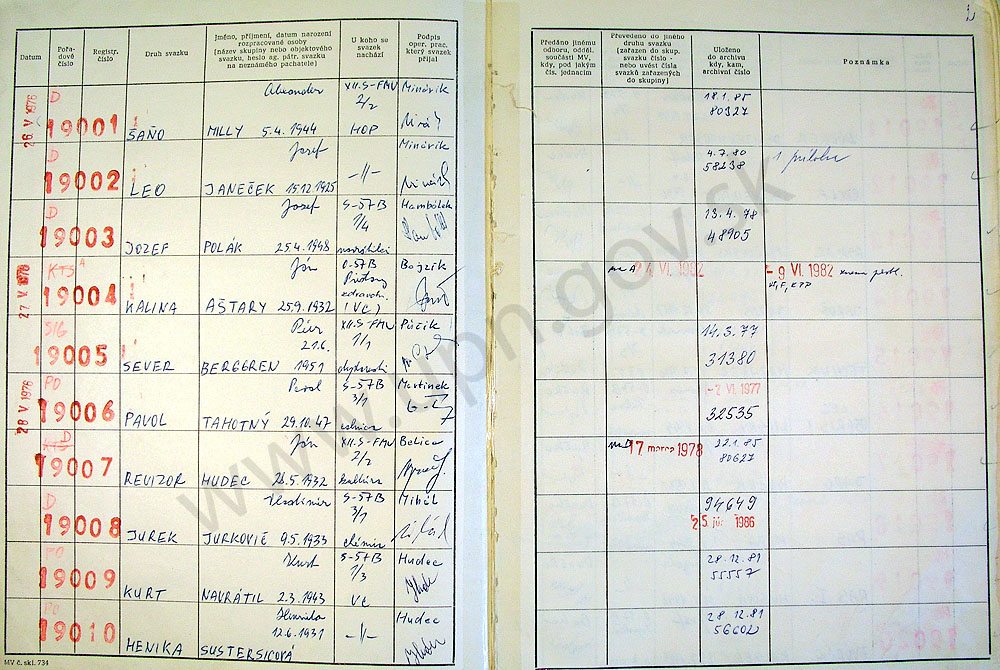 Datum
Pořa-
dové
číslo
Registr.
číslo
Druh svazku
Jméno, příjmení, datum narození
rozpracované osoby
(název skupiny nebo objektového
svazku, heslo ag. pátr. svazku
na neznámého pachatele)
U koho se
svazek
nachází
Podpis
oper. prac.
který svazek
přijal
Předáno jinému
odboru, odděl.
součásti MV,
kdy, pod jakým
čís. jednacím
Převedeno do jiného
druhu svazku
(zařazen do skup.
svazku číslo -
nebo uvést čísla
svazků zařazených
do skupiny)
Uloženo
do archivu
kdy, kam,
archivní číslo
Poznámka
26 V 1976
D
19001
ŠAŇO
Alexander
MILLY 5.4.1944
XII.S-FMV
2/2
HOP
Minárik
18.1.85
80327
D
19002
LEO
Jozef
JANEČEK 15.12.1925
-||-
Minárik
4.7.80
58238
1 príloha
D
19003
JOZEF
Jozef
POLÁK 25.4.1948
S-57B
1/4
Hambálek
13.4.78
48905
27 V 1976
KTS
19004
KALINA
Ján
AŠTARY 25.9.1932
(VC)
Bojzik
VI. 1982
- 9 VI. 1982
SIG
19005
SEVER
Peter
21.6.
BERGGREN 1951
XII.S-FMV
1/1
Púčik
14.3.77
31380
28 V 1976
PO
19006
PAVOL
Pavol
TAHOTNÝ 29.10.47
S-57B
3/1
Martinek
-2 VI. 1977
32535
KTS D
19007
REVIZOR
Ján
HUDEC 26.5.1932
XII.S-FMV
2/2
kultúra
Belica
17 marca 1978
22.1.85
80627
D
19008
JUREK
Vladimír
JURKOVIČ 9.5.1933
S-57B
3/1
chémia
Mihál
94649
25. júl 1986
PO
19009
KURT
Kurt
NAVRÁTIL 2.3.1943
S-57B
1/3
VC
Hudec
28.12.81
55557
PO
19010
HENIKA
Henrieta
12.6.1931
SUSTERSICOVÁ
-||-
Hudec
28.12.81
56602
MV č. skl. 734
www.upn.gov.sk